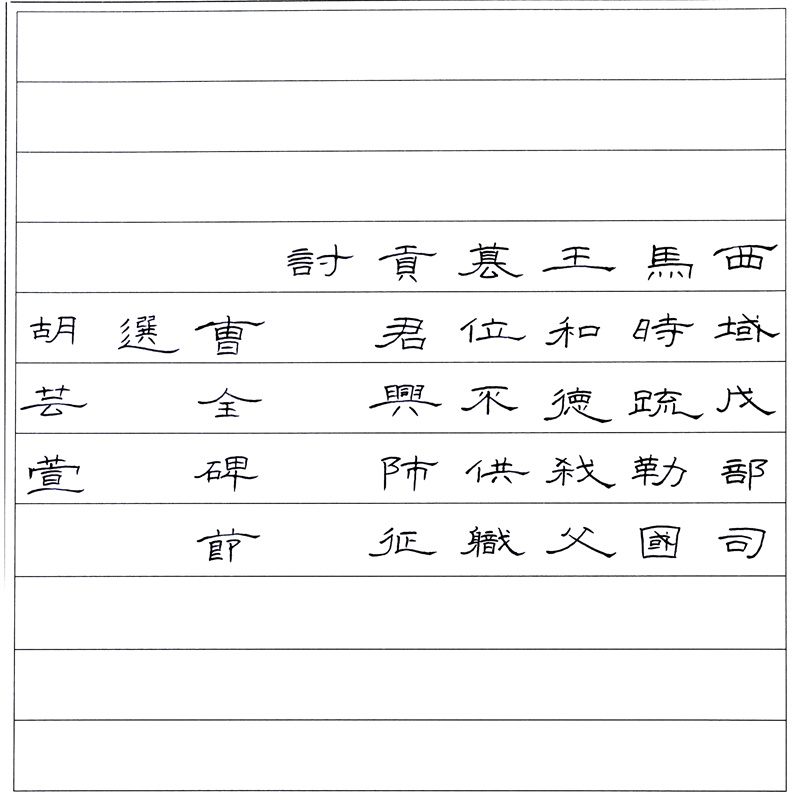 西域戊部司
馬時疏勒國
王和德弒父
篡位不供職
貢君興師征
討
曹全碑節
選
胡芸萱